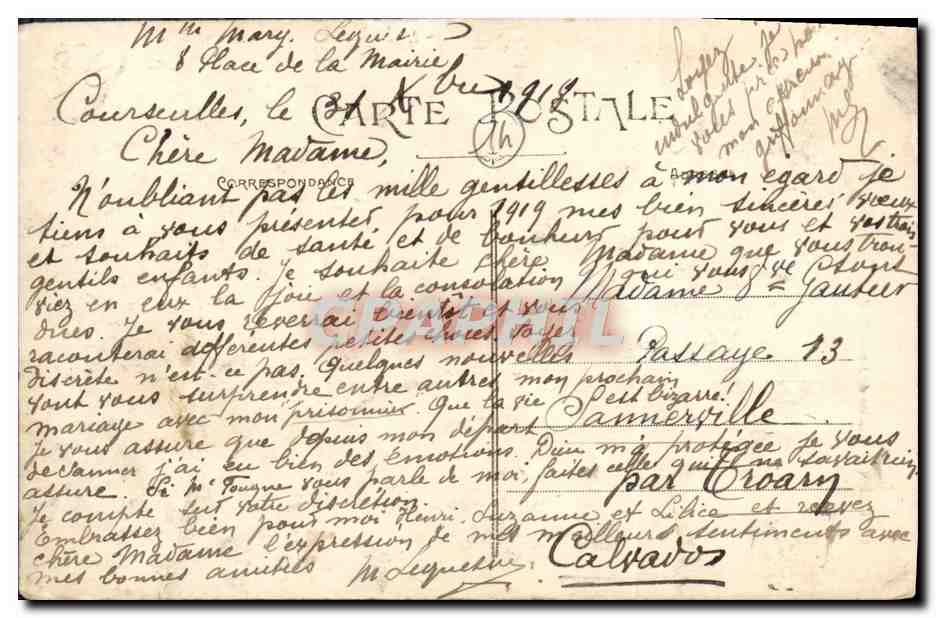 Mme Mary. Lequesne
8 Place de la Mairie
Courseulles, le 31 Xbre 1918
CARTE POSTALE
14
Soyez
indulgente. je
vous prie pour
mon
griffonnage
ML
Chère Madame,
CORRESPONDANCE
N'oubliant pas les mille gentillesses à mon égard je
tiens à vous présenter pour 1919 mes bien sincères vœux
et souhaits de santé et de bonheur pour vous et vos trois
gentils enfants. Je souhaite chère Madame que vous trou-
viez en eux la joie et la consolation qui vous sont
dues. Je vous reverrai bientôt et vous
raconterai différentes petites choses soyez
discrète n'est ce pas. Quelques nouvelles
vont vous surprendre entre autres mon prochain
mariage avec mon prisonnier. Que la vie est bizarre!
Je vous assure que depuis mon départ
de Sanner j'ai eu bien des émotions. Dieu m'a protégée je vous
assure. Si Mr Fougue vous parle de moi, faites celle qui ne savait rien
Je compte sur votre discrétion.
Embrassez bien pour moi Henri, Suzanne et Lilice et recevez
chère Madame l'expression de mes meilleurs sentiments avec
mes bonnes amitiés
M Lequesne
Madame Vve Gautier
Passage 13
Sannerville
par Troarn
Calvados
CPARAMA.COM